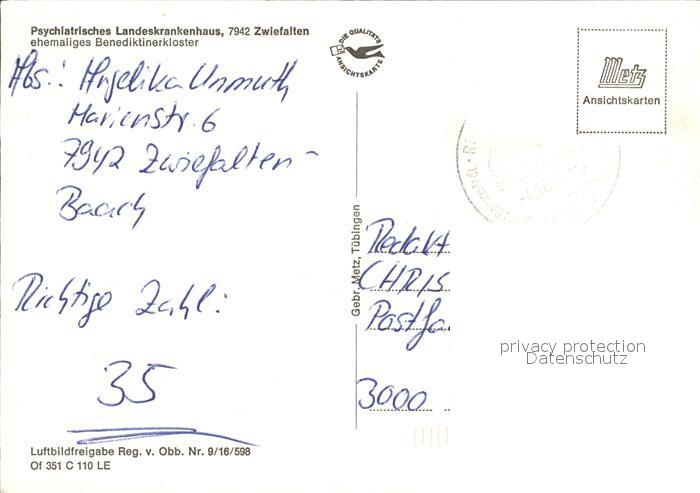 Psychiatrisches Landeskrankenhaus, 7942 Zwiefalten
ehemaliges Benediktinerkloster
Abs.: Angelika Unmuth
Marienstr. 6
7942 Zwiefalten-
Baach
Richtige Zahl:
35
Luftbildfreigabe Reg. v. Obb. Nr. 9/16/598
Of 351 C 110 LE
DIE QUALITÄTS
ANSICHTSKARTE
Gebr. Metz, Tübingen
Metz
Ansichtskarten
Redakt
CHRIS
Postfa
3000
privacy protection
Datenschutz